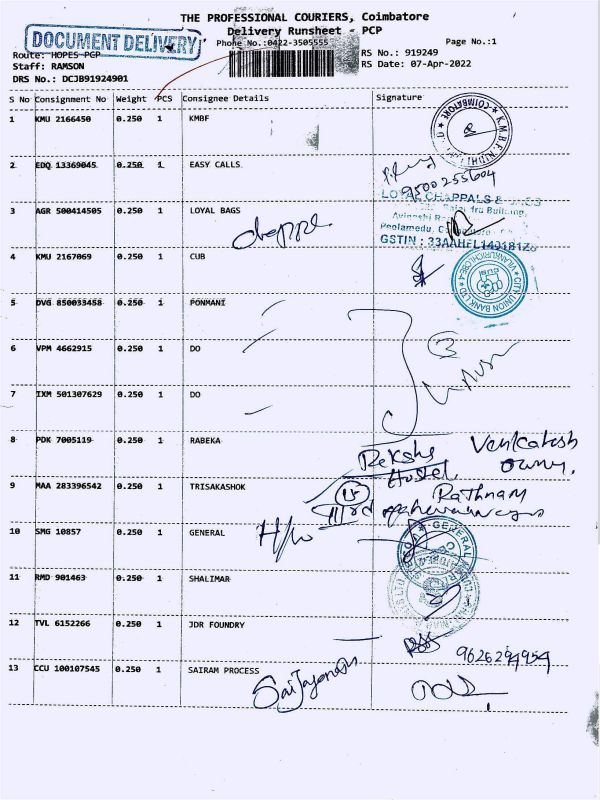 THE PROFESSIONAL COURIERS, Coimbatore
Delivery Runsheet - PCP
DOCUMENT DELIVERY
Phone No.:0422-3505555 Page No.:1
Route: HOPES-PCP RS No.: 919249
Staff: RAMSON RS Date: 07-Apr-2022
DRS No.: DCJB91924901
S No Consignment No Weight PCS Consignee Details Signature
1 KMU 2166450 0.250 1 KMBF
COIMBATORE
K.M.B.F. NIDHI
2 EDQ 13369045 0.250 1 EASY CALLS
9500255604
LOYAL CHAPPALS &
3 AGR 500414505 0.250 1 LOYAL BAGS
Avinashi
Peelamedu,
GSTIN : 33AAHFL1401B1Z6
4 KMU 2167069 0.250 1 CUB
CITY UNION BANK LTD
CUB
5 DVG 850033458 0.250 1 PONMANI
6 VPM 4662915 0.250 1 DO
3
7 IXM 501307629 0.250 1 DO
8 PDK 7005119 0.250 1 RABEKA
Venkatesh
Hostel
9 MAA 283396542 0.250 1 TRISAKASHOK
15 Rathnam
10 SMG 10857 0.250 1 GENERAL
H/w
GENERAL
11 RMD 901463 0.250 1 SHALIMAR
12 TVL 6152266 0.250 1 JDR FOUNDRY
9626294954
13 CCU 100107545 0.250 1 SAIRAM PROCESS